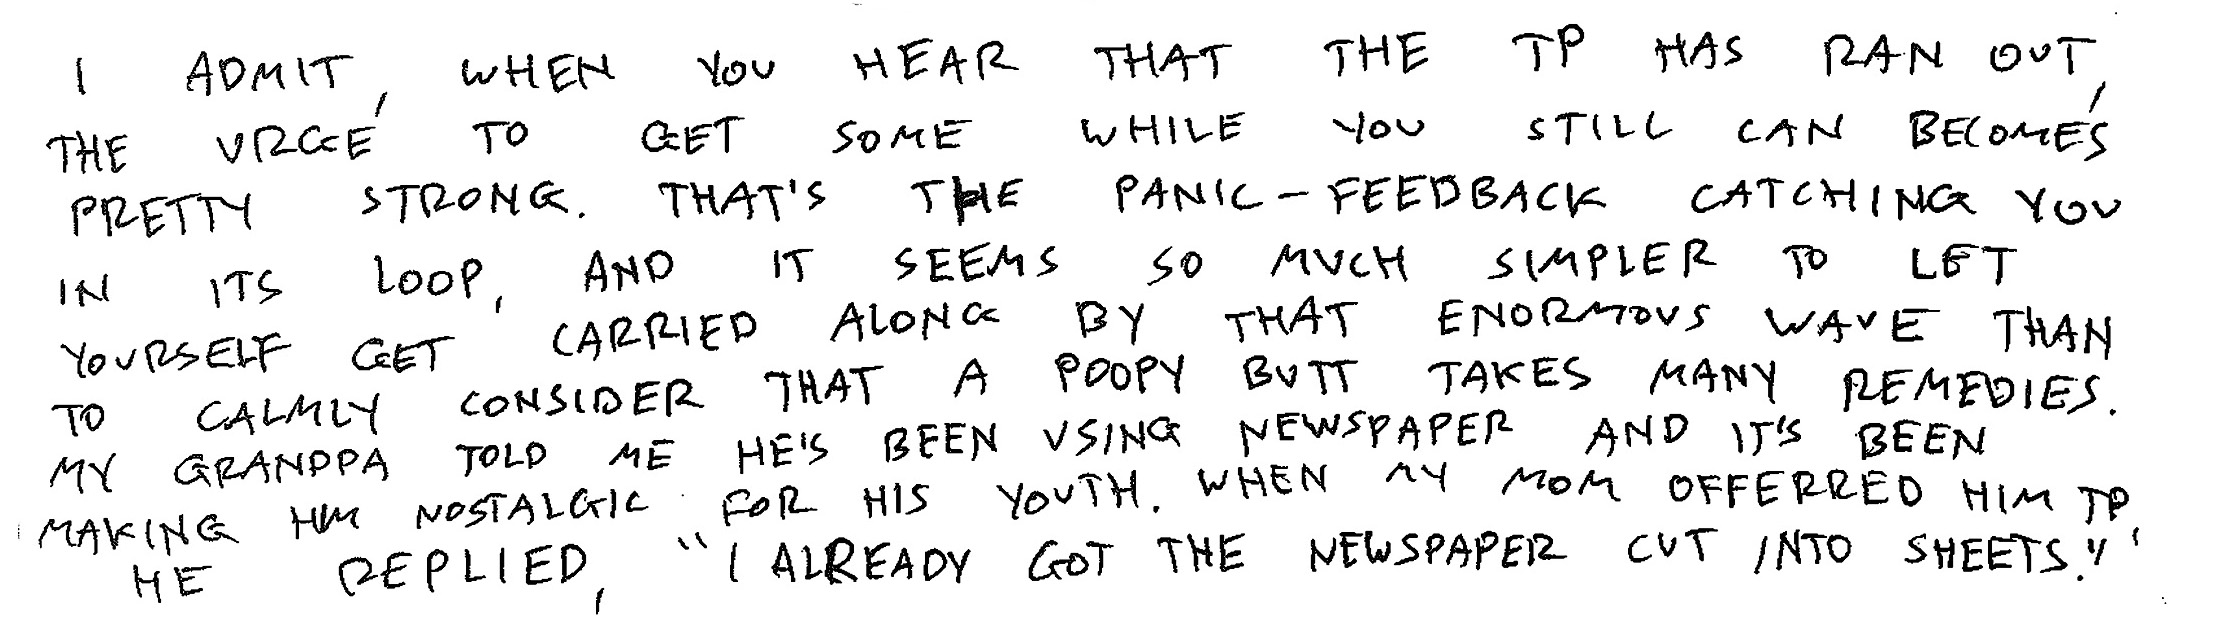 I ADMIT, WHEN YOU HEAR THAT THE TP HAS RAN OUT,
THE URGE TO GET SOME WHILE YOU STILL CAN BECOMES
PRETTY STRONG. THAT'S THE PANIC-FEEDBACK CATCHING YOU
IN ITS LOOP, AND IT SEEMS SO MUCH SIMPLER TO LET
YOURSELF GET CARRIED ALONG BY THAT ENORMOUS WAVE THAN
TO CALMLY CONSIDER THAT A POOPY BUTT TAKES MANY REMEDIES.
MY GRANDPA TOLD ME HE'S BEEN USING NEWSPAPER AND IT'S BEEN
MAKING HIM NOSTALGIC FOR HIS YOUTH. WHEN MY MOM OFFERRED HIM TP,
HE REPLIED, "I ALREADY GOT THE NEWSPAPER CUT INTO SHEETS."